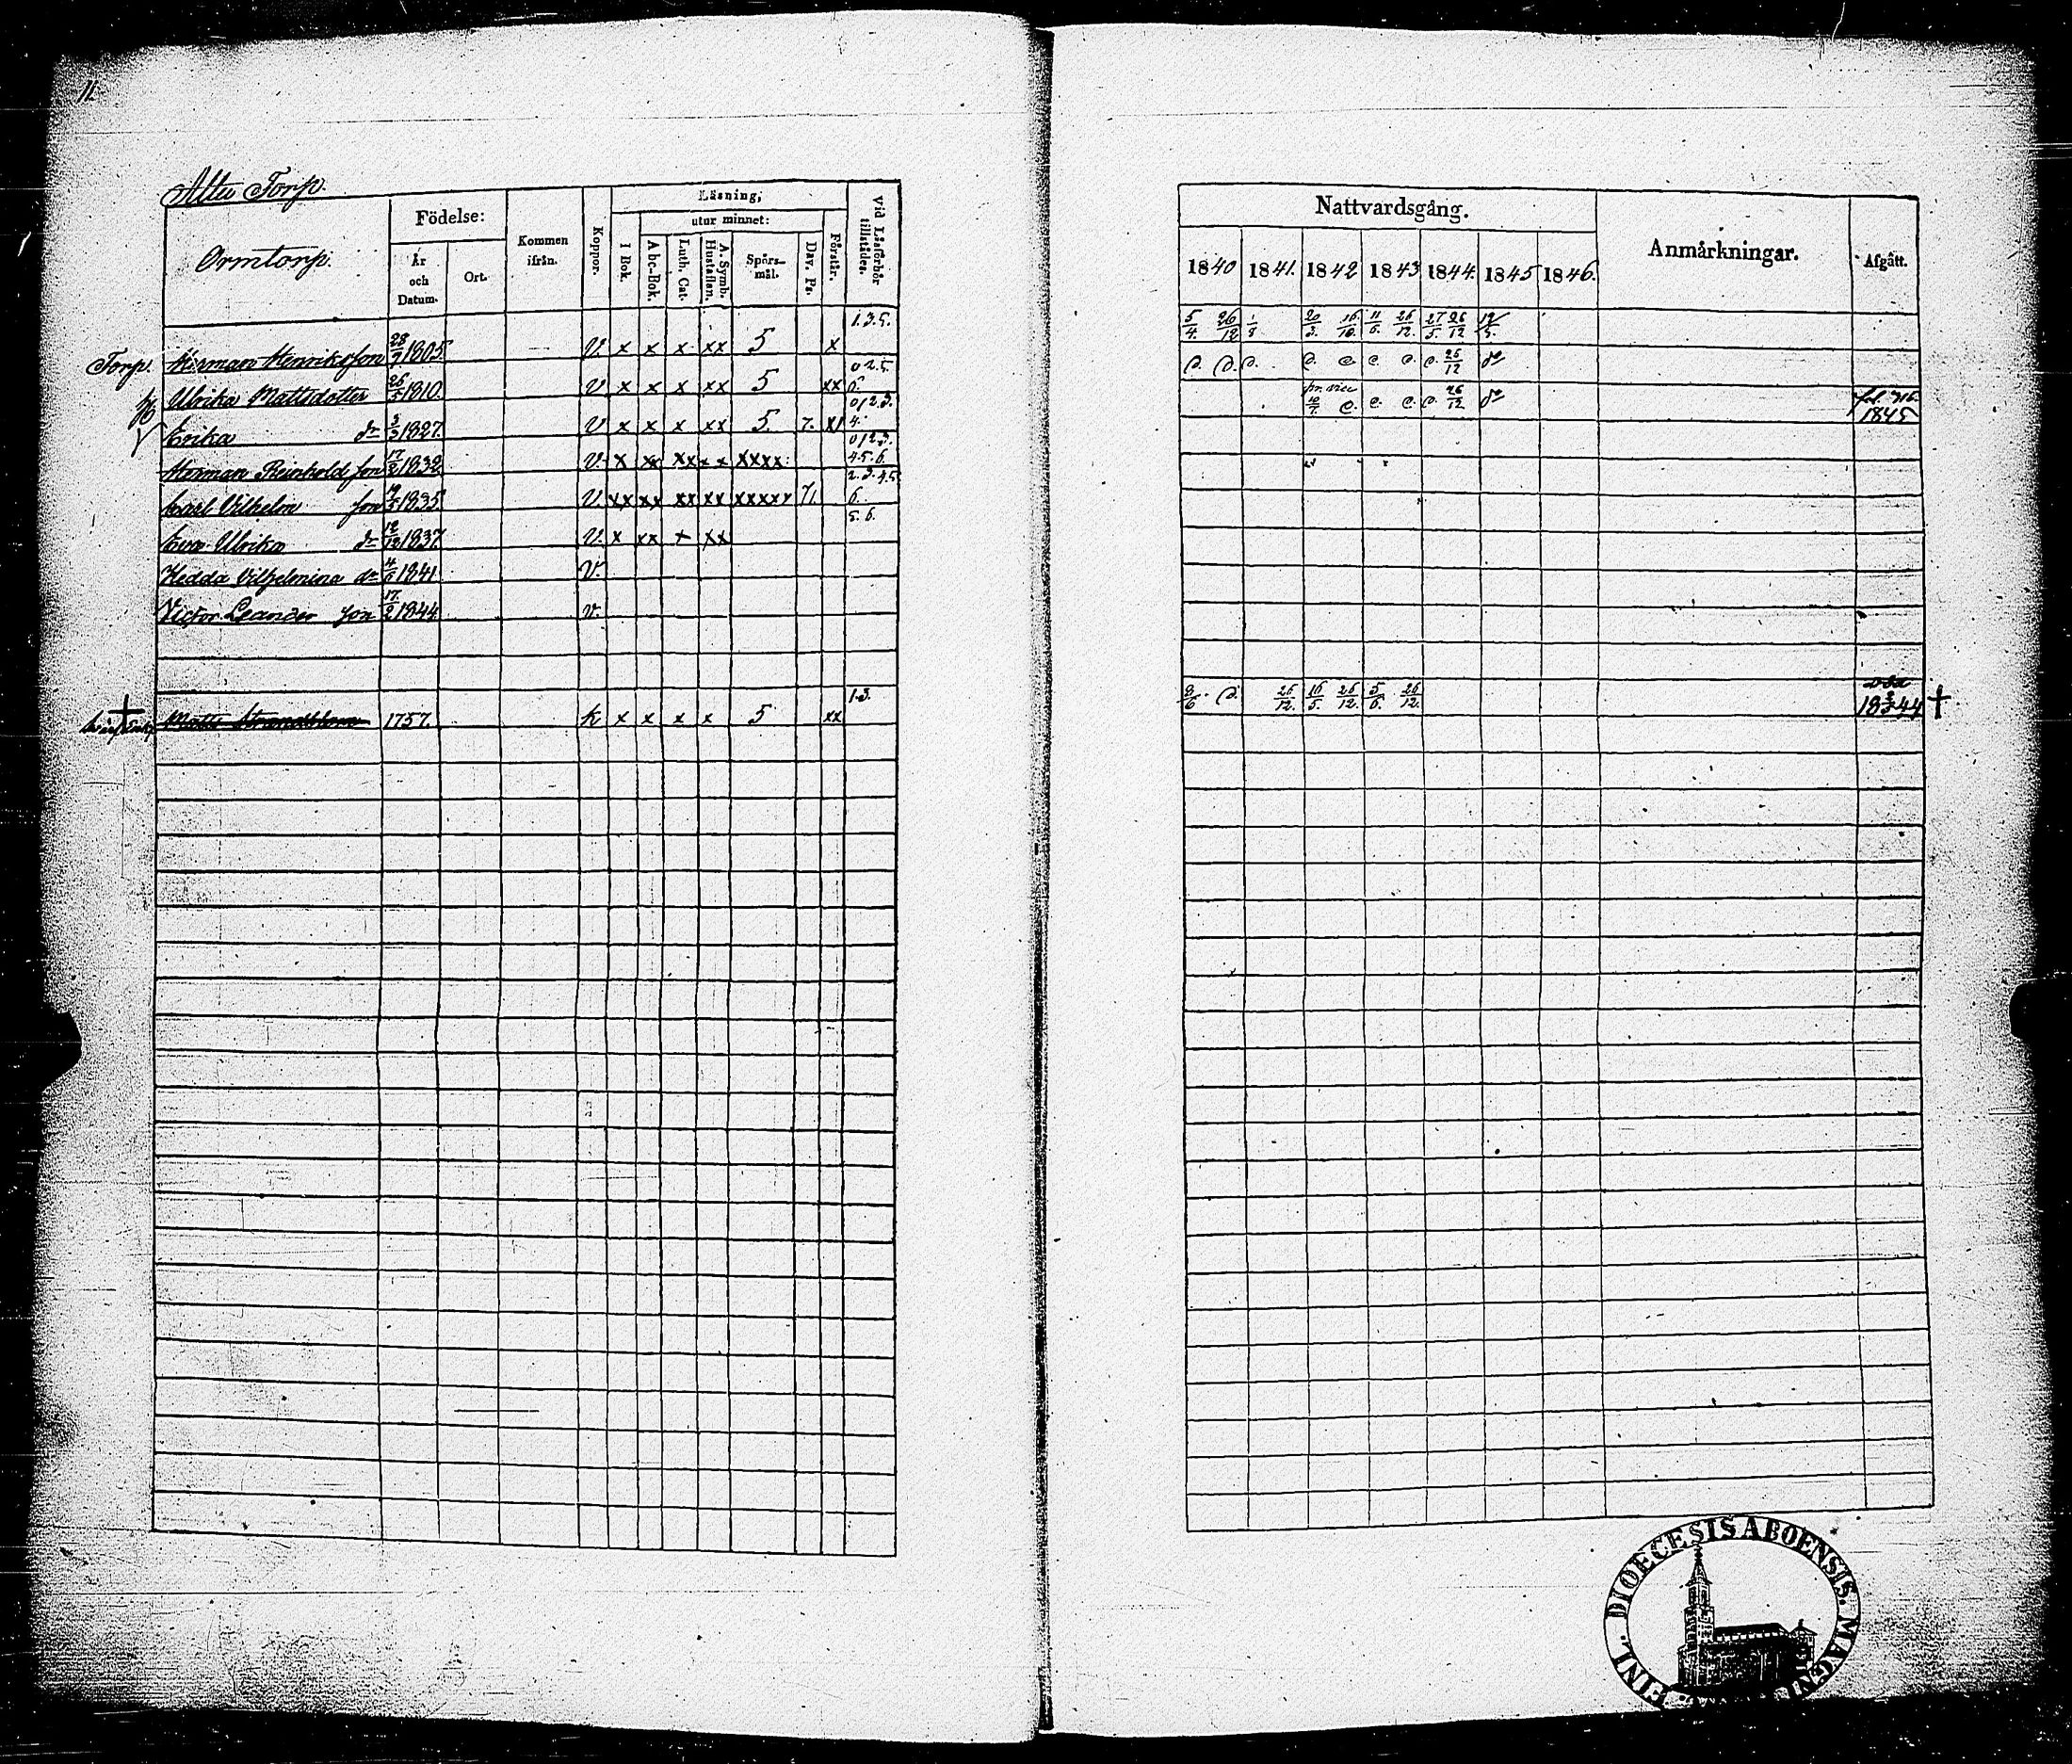 11
Alter Torp.
Ormtorp.
Födelse:
År
och
Datum.
Ort.
Kommen
ifrån.
Koppor.
Läsning;
I Bok.
utur minnet:
Abc-Bok.
Luth. Cat.
A. Symb.
Hustaflan.
Spörs-
mål.
Dav. Ps.
Förstår.
Vid Läsförhör
tillstädes.
Torp. Herman Henriksson 28/7 1805. V. x x x xx 5 x 1.3.5.
Ulrika Mattsdotter 26/5 1810. V x x x xx 5 xx 02.5. 6.
Erika dr 3/3 1827. V x x x xx 5. 7. 0123. 4.
Herman Reinhold son 17/2 1832 V. x xx xx xx xxxx 0123. 45.6.
Carl Vilhelm son 1835. V. xx xx xx xx xxxxx 7. 2.3.45. 6.
Eva Ulrika dr 12/12 1837. V. x xx x xx 5.6.
Hedda Vilhelmina dr 4/6 1841. V.
Victor Leander son 17/2 1844 V.
Matts 1757. k x x x x 5 xx 1.3.
Nattvardsgång.
Anmärkningar.
Afgått.
1840 1841. 1842 1843 1844. 1845 1846.
5/4 26/12 20/3. 16/10. 11/6. 26/12. 27/5. 26/12
26/12
pr. vice
26/12
1845
26/12. 16/5. 26/12. 5/6. 26/12.
18 44 †
FINL. DIOECESIS ABOENSIS. MAGNI